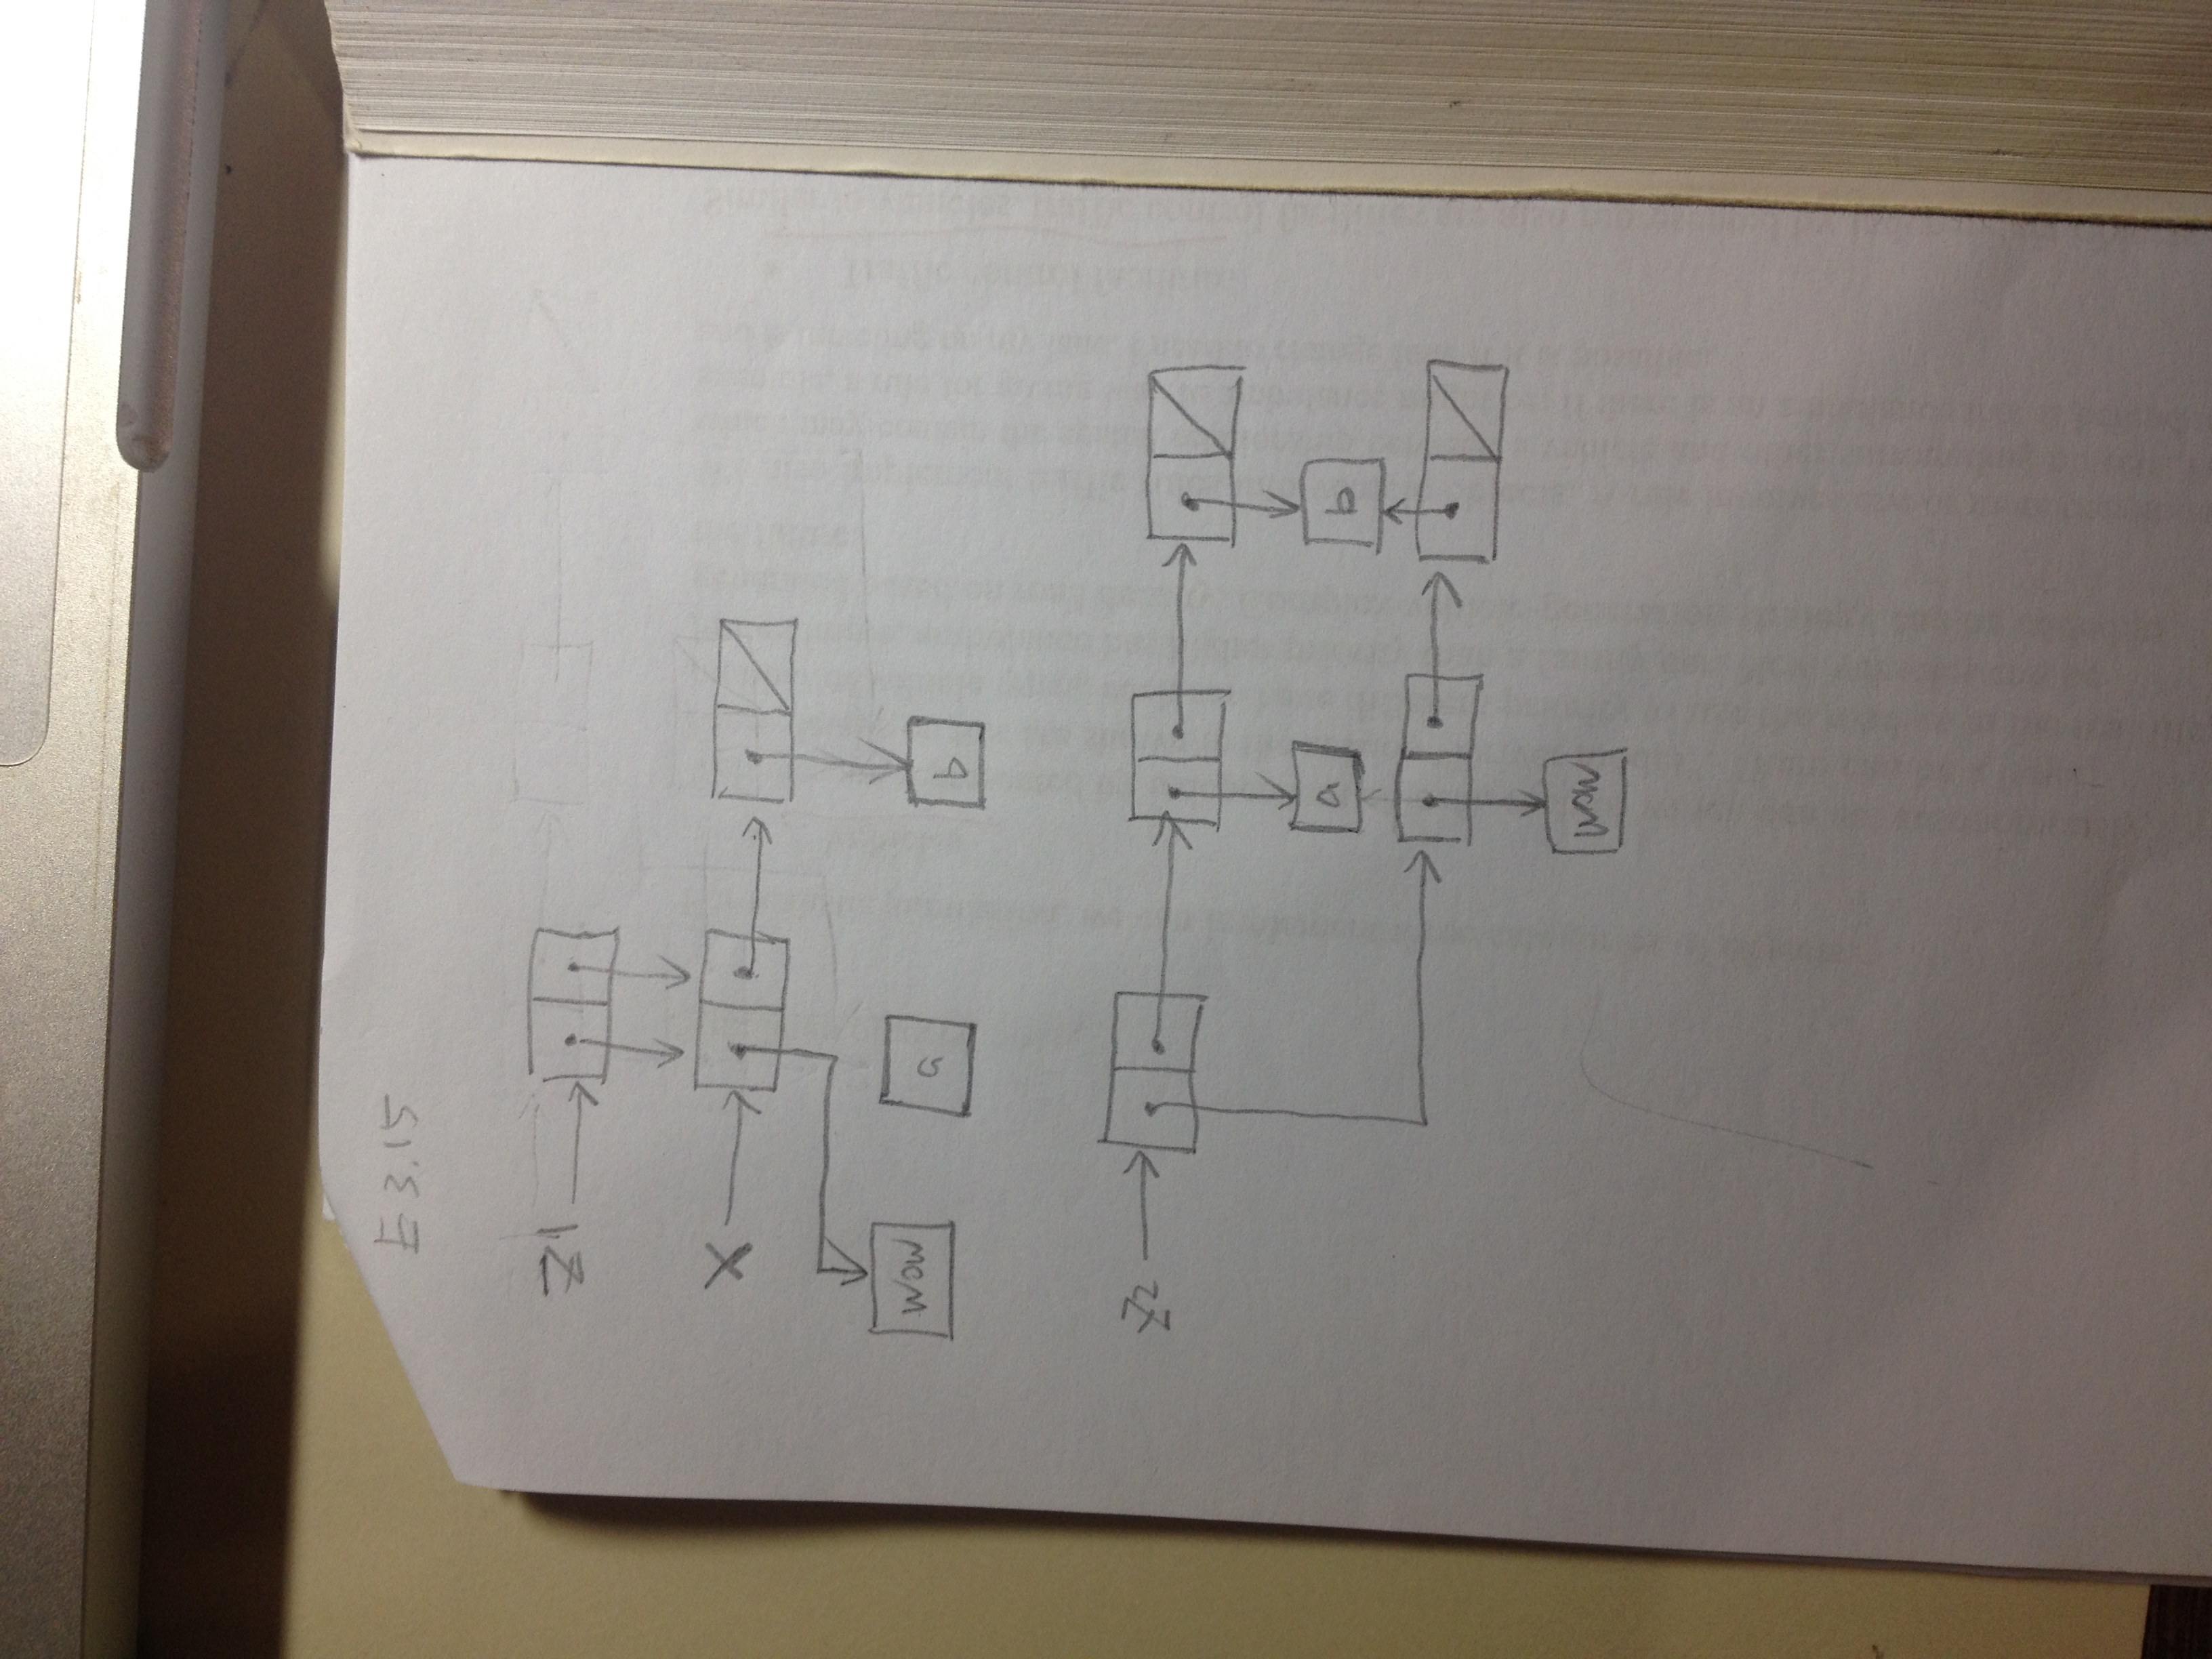 E 3.15
Z1
X
wow a b
Z2
a b
wow